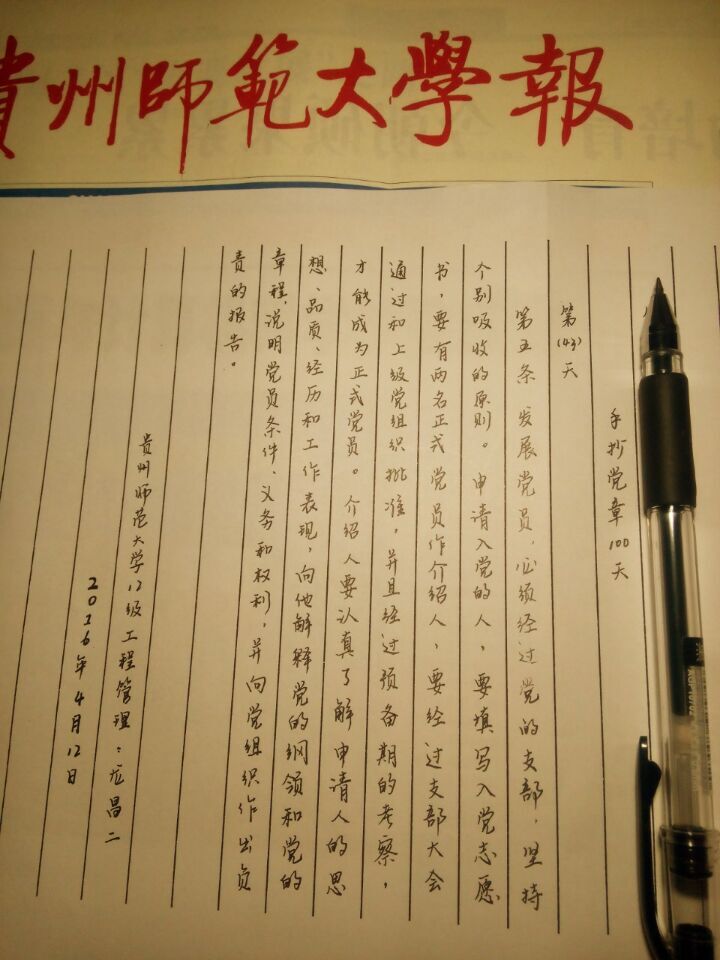 貴州師範大學報
手抄党章100天
第(43)天
第五条 发展党员,必须经过党的支部,坚持
个别吸收的原则。申请入党的人,要填写入党志愿
书,要有两名正式党员作介绍人,要经过支部大会
通过和上级党组织批准,并且经过预备期的考察,
才能成为正式党员。介绍人要认真了解申请人的思
想、品质、经历和工作表现,向他解释党的纲领和党的
章程,说明党员条件、义务和权利,并向党组织作出负
责的报告。
贵州师范大学12级工程管理:龙昌二
2016年4月12日